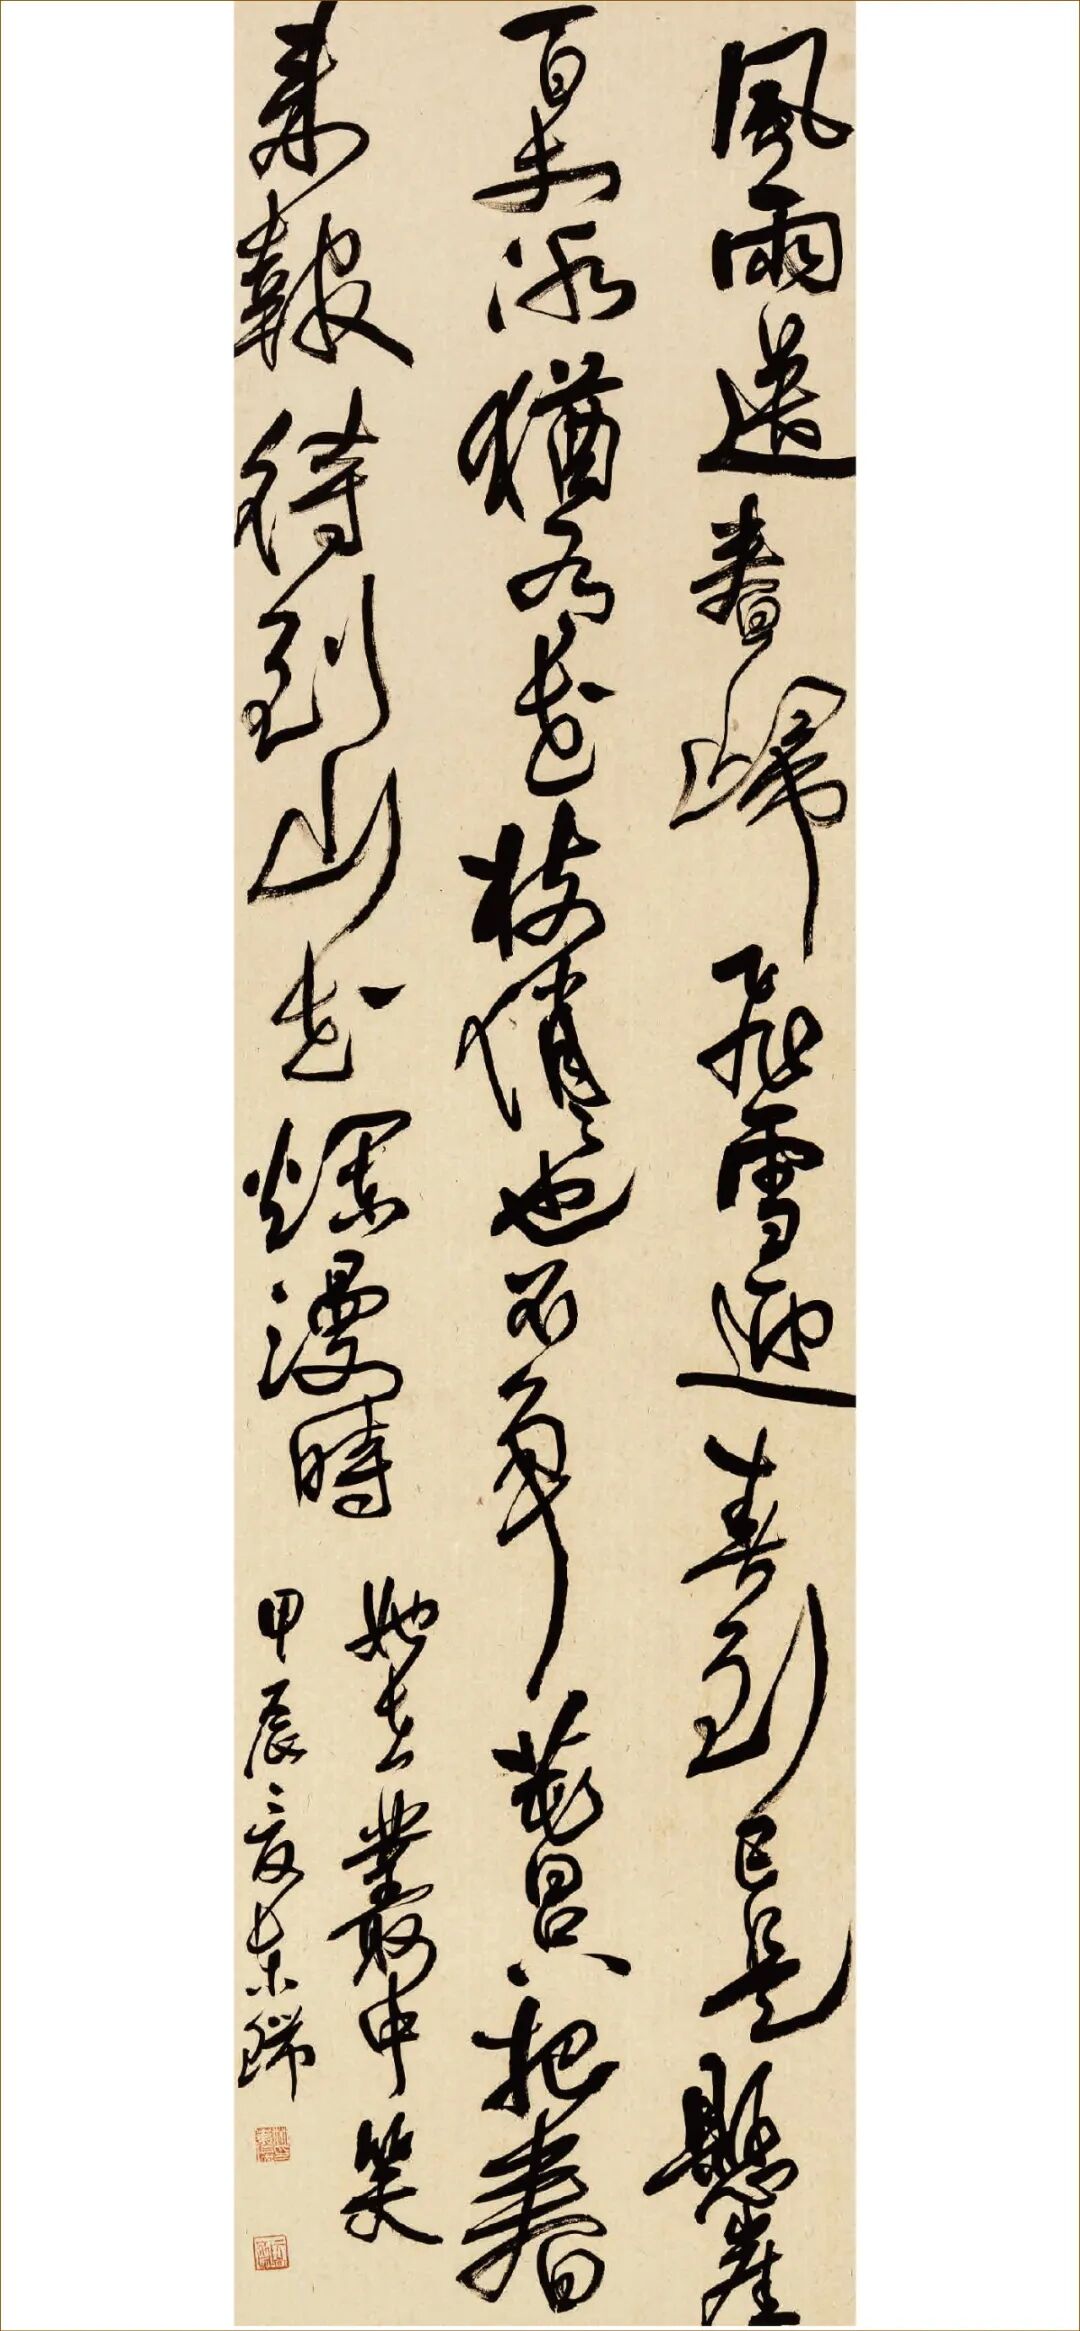 風雨送春歸飛雪迎春到已是懸崖
百丈冰猶有花枝俏俏也不爭春只把春
來報待到山花爛漫時
她在叢中笑
甲辰之夏東瑞